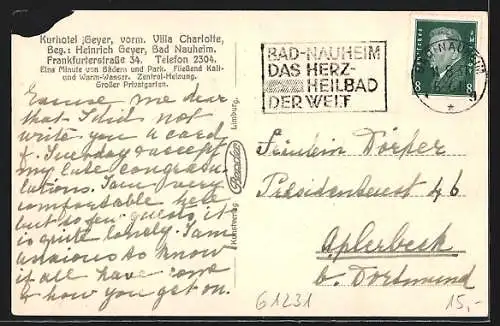 Kurhotel Geyer, vorm. Villa Charlotte,
Bes.: Heinrich Geyer, Bad Nauheim.
Frankfurterstraße 34. Telefon 2304.
Eine Minute von Bädern und Park. Fließend Kalt-
und Warm-Wasser. Zentral-Heizung.
Großer Privatgarten.
Excuse me dear
that I did not
write you a card
f. Tuesday & accept
my late congratu-
lations. I am very
comfortable here
but so few guests, it
is quite lonely. I am
anxious to know
if all have come
& how you get on.
Kunstverlag Bender Limburg.
BAD-NAUHEIM
DAS HERZ-
HEILBAD
DER WELT
BAD-NAUHEIM
DEUTSCHES REICH
8 8
Fräulein Dörfer
Präsidentenstr 46
Aplerbeck
b. Dortmund
G1231
15,-